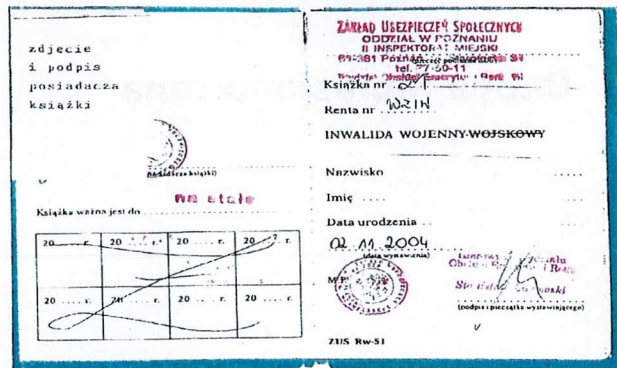 zdjęcie
i podpis
posiadacza
książki
książki)
Na stałe
Książka ważna jest do
20 .... r. 20 .... r. 20 .... r. 20 .... r.
20 .... r. 20 .... r. 20 .... r. 20 .... r.
ZAKŁAD UBEZPIECZEŃ SPOŁECZNYCH
ODDZIAŁ W POZNANIU
II INSPEKTORAT MIEJSKI
Poznań
tel. 77-50-11
Książka nr
Renta nr
INWALIDA WOJENNY-WOJSKOWY
Nazwisko
Imię
Data urodzenia
02 11 2004
(data wystawienia)
(podpis i pieczątka wystawiającego)
ZUS Rw-51